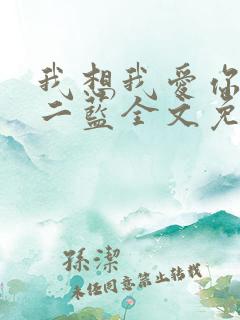 我想我爱你
二蓝全文免
孫潔
未任同意禁止转载